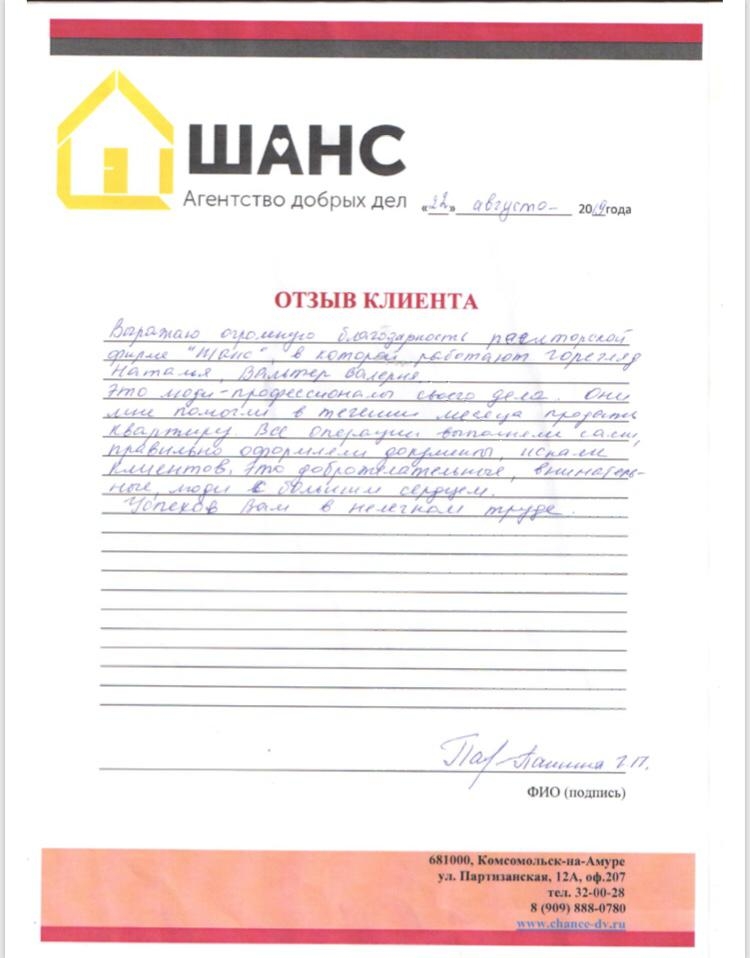 ШАНС
Агентство добрых дел
«22» августа 2019года
ОТЗЫВ КЛИЕНТА
Выражаю огромную благодарность риэлторской
фирме "Шанс", в которой работают Горегляд
Наталья, Вальтер Валерия.
Это люди-профессионалы своего дела. Они
мне помогли в течении месяца продать
квартиру. Все операции выполняли сами,
правильно оформляли документы, искали
клиентов. Это доброжелательные, вниматель-
ные, люди с большим сердцем.
Успехов Вам в нелегком труде.
Г.П.
ФИО (подпись)
681000, Комсомольск-на-Амуре
ул. Партизанская, 12А, оф.207
тел. 32-00-28
8 (909) 888-0780
www.chance-dv.ru